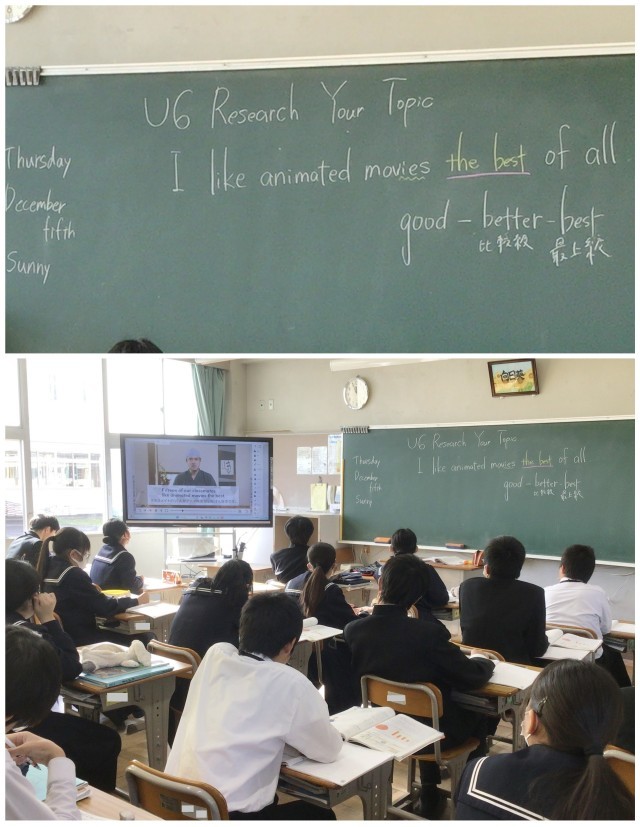 U6 Research Your Topic
I like animated movies the best of all
good – better – best
比較級 最上級
Thursday
December
fifth
Sunny
向日葵
U6 Research Your Topic
I like animated movies the best of all
good – better – best
比較級 最上級
Thursday
December
fifth
Sunny